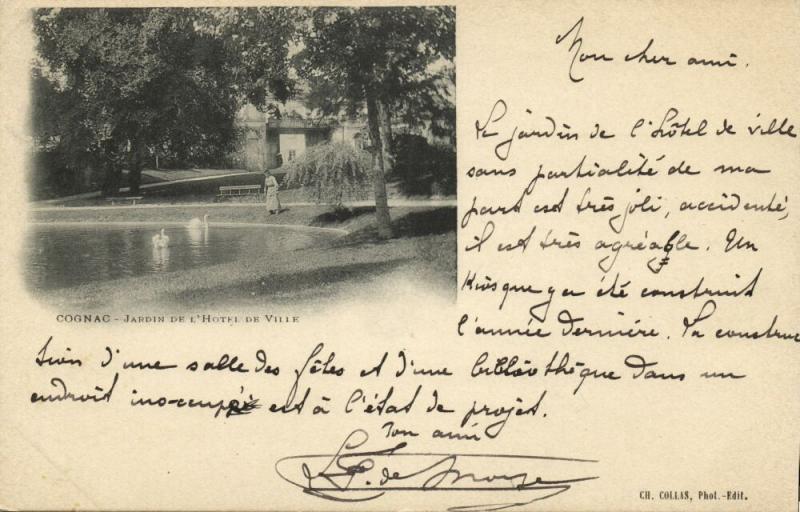 Mon cher ami.
Le jardin de l'hôtel de ville
sans partialité de ma
part est très joli, accidenté,
il est très agréable. Un
Kiosque y a été construit
l'année dernière. La construc
tion d'une salle des fêtes et d'une bibliothèque dans un
endroit inoccupé est à l'état de projet.
Ton ami
COGNAC - JARDIN DE L'HOTEL DE VILLE
CH. COLLAS, Phot.-Edit.